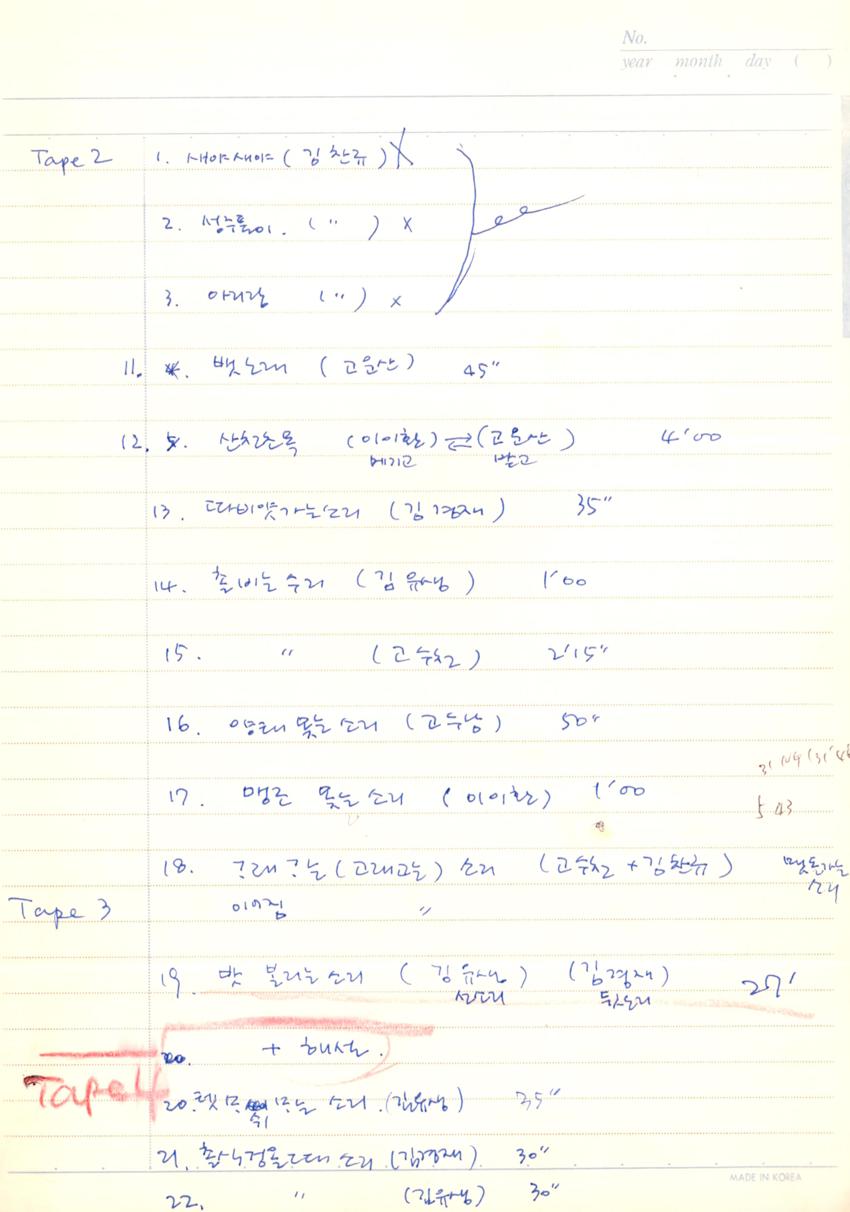 No.
year month day ( )
Tape 2 1. 새야새야 ( 김찬규 ) X
2. 성주풀이. ( " ) X
3. 아리랑 ( " ) X
11. 뱃노래 ( 고운산 ) 45"
12. 산천초목 (이이환) ⇄ (고운산) 4'00
메기고 받고
13. 따비왓가는소리 (김경재) 35"
14. 촐비는 수리 (김유생) 1'00
15. " (고수천) 2'15"
16. 양태 못는 소리 (고수남) 50"
17. 맹근 못는 소리 (이이환) 1'00
5 43
18. ᄀ래 ᄀ는 (고래고는) 소리 (고수천 + 김찬규) 맷돌가는
소리
Tape 3 이어짐 "
19. 밧 볼리는 소리 (김유생) (김경재) 27'
선소리 뒷소리
+ 해설.
Tape 4
20. 소리. (김유생) 35"
쉬
21. 소리 (김경재) 30"
22. " (김유생) 30"
MADE IN KOREA